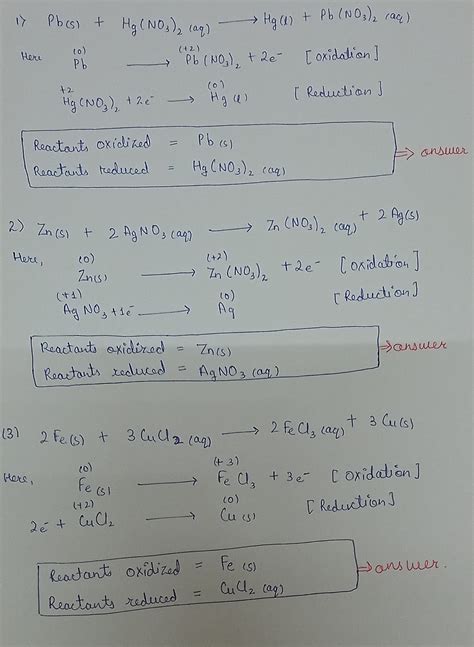 1) Pb(s) + Hg(NO3)2 (aq) ⟶ Hg(l) + Pb(NO3)2 (aq)
Here (0) Pb ⟶ (+2) Pb(NO3)2 + 2e- [oxidation]
+2 Hg(NO3)2 + 2e- ⟶ (0) Hg(l) [Reduction]
Reactants oxidized = Pb(s)
Reactants reduced = Hg(NO3)2 (aq) ⇒ answer
2) Zn(s) + 2 AgNO3(aq) ⟶ Zn(NO3)2 (aq) + 2 Ag(s)
Here, (0) Zn(s) ⟶ (+2) Zn(NO3)2 + 2e- [oxidation]
(+1) AgNO3 + 1e- ⟶ (0) Ag [Reduction]
Reactants oxidized = Zn(s) ⇒ answer
Reactants reduced = AgNO3 (aq)
(3) 2 Fe(s) + 3 CuCl2 (aq) ⟶ 2 FeCl3 (aq) + 3 Cu(s)
Here, (0) Fe(s) ⟶ (+3) FeCl3 + 3e- [oxidation]
2e- + (+2) CuCl2 ⟶ (0) Cu(s) [Reduction]
Reactants oxidized = Fe(s) ⇒ answer.
Reactants reduced = CuCl2 (aq)